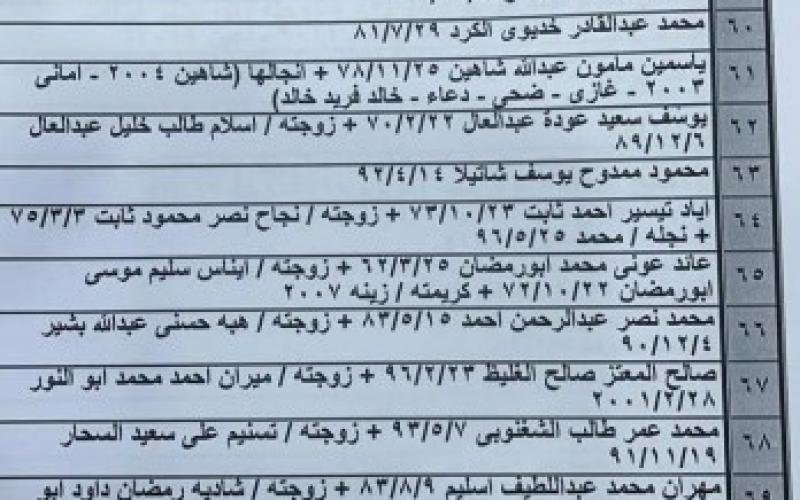 ٦٠ محمد عبدالقادر خديوى الكرد ٨١/٧/٢٩
٦١ ياسمين مامون عبدالله شاهين ٧٨/١١/٢٥ + انجالها (شاهين ٢٠٠٤ - امانى
٢٠٠٣ - غازى - ضحى - دعاء - خالد فريد خالد)
٦٢ يوسف سعيد عودة عبدالعال ٧٠/٢/٢٢ + زوجته / اسلام طالب خليل عبدالعال
٨٩/١٢/٦
٦٣ محمود ممدوح يوسف شاتيلا ٩٢/٤/١٤
٦٤ اياد تيسير احمد ثابت ٧٣/١٠/٢٣ + زوجته / نجاح نصر محمود ثابت ٧٥/٣/٣
+ نجله / محمد ٩٦/٥/٢٥
٦٥ عائد عونى محمد ابورمضان ٦٢/٣/٢٥ + زوجته / ايناس سليم موسى
ابورمضان ٧٢/١٠/٢٢ + كريمته / زينه ٢٠٠٧
٦٦ محمد نصر عبدالرحمن احمد ٨٣/٥/١٥ + زوجته / هبه حسنى عبدالله بشير
٩٠/١٢/٤
٦٧ صالح المعتز صالح الغليظ ٩٦/٢/٢٣ + زوجته / ميران احمد محمد ابو النور
٢٠٠١/٢/٢٨
٦٨ محمد عمر طالب الشغنوبى ٩٣/٥/٧ + زوجته / تسنيم على سعيد السحار
٩١/١١/١٩
٦٩ مهران محمد عبداللطيف اسليم ٨٣/٨/٩ + زوجته / شاديه رمضان داود ابو